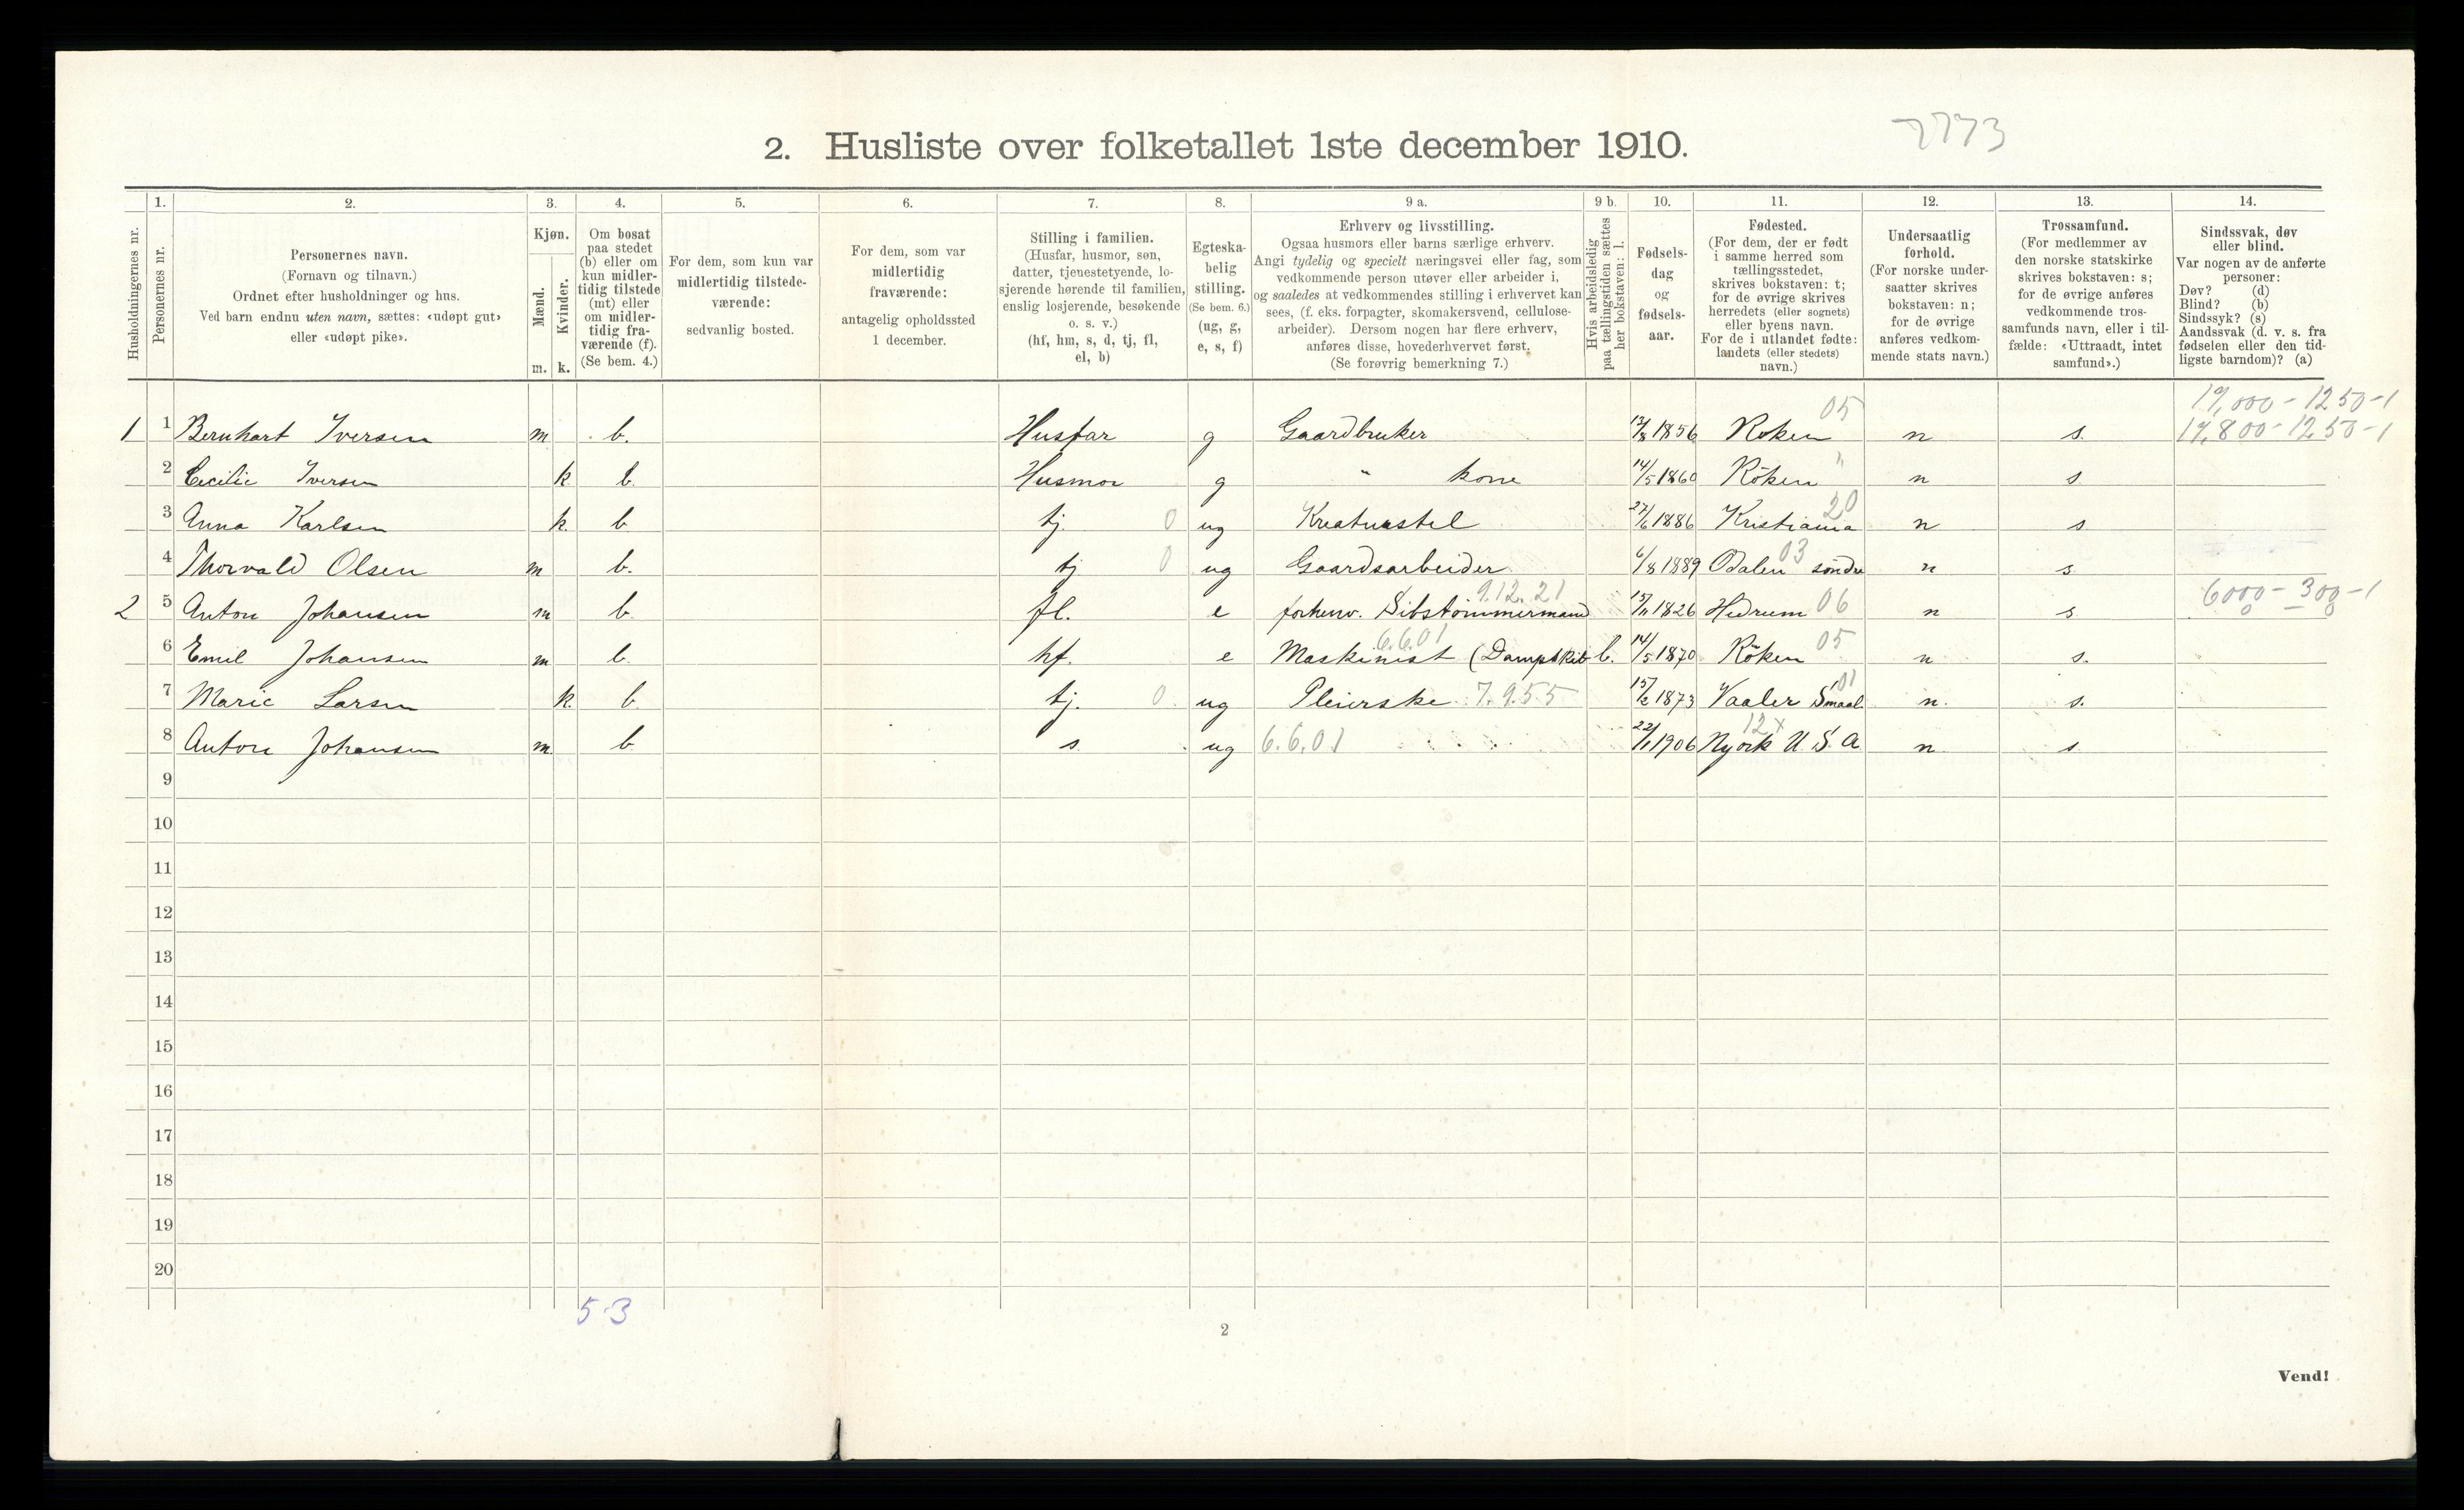 2. Husliste over folketallet 1ste december 1910.
7773
Husholdningernes nr.
1.
Personernes nr.
2.
Personernes navn.
(Fornavn og tilnavn.)
Ordnet efter husholdninger og hus.
Ved barn endnu uten navn, sættes: «udøpt gut»
eller «udøpt pike».
3.
Kjøn.
Mænd.
Kvinder.
m. k.
4.
Om bosat
paa stedet
(b) eller om
kun midler-
tidig tilstede
(mt) eller
om midler-
tidig fra-
værende (f).
(Se bem. 4.)
5.
For dem, som kun var
midlertidig tilstede-
værende:
sedvanlig bosted.
6.
For dem, som var
midlertidig
fraværende:
antagelig opholdssted
1 december.
7.
Stilling i familien.
(Husfar, husmor, søn,
datter, tjenestetyende, lo-
sjerende hørende til familien,
enslig losjerende, besøkende
o. s. v.)
(hf, hm, s, d, tj, fl,
el, b)
8.
Egteska-
belig
stilling.
(Se bem. 6.)
(ug, g,
e, s, f)
9 a.
Erhverv og livsstilling.
Ogsaa husmors eller barns særlige erhverv.
Angi tydelig og specielt næringsvei eller fag, som
vedkommende person utøver eller arbeider i,
og saaledes at vedkommendes stilling i erhvervet kan
sees, (f. eks. forpagter, skomakersvend, cellulose-
arbeider). Dersom nogen har flere erhverv,
anføres disse, hovederhvervet først.
(Se forøvrig bemerkning 7.)
9 b.
Hvis arbeidsledig
paa tællingstiden sættes
her bokstaven: l.
10.
Fødsels-
dag
og
fødsels-
aar.
11.
Fødested.
(For dem, der er født
i samme herred som
tællingsstedet,
skrives bokstaven: t;
for de øvrige skrives
herredets (eller sognets)
eller byens navn.
For de i utlandet fødte:
landets (eller stedets)
navn.)
12.
Undersaatlig
forhold.
(For norske under-
saatter skrives
bokstaven: n;
for de øvrige
anføres vedkom-
mende stats navn.)
13.
Trossamfund.
(For medlemmer av
den norske statskirke
skrives bokstaven: s;
for de øvrige anføres
vedkommende tros-
samfunds navn, eller i til-
fælde: «Uttraadt, intet
samfund».)
14.
Sindssvak, døv
eller blind.
Var nogen av de anførte
personer:
Døv? (d)
Blind? (b)
Sindssyk? (s)
Aandssvak (d. v. s. fra
fødselen eller den tid-
ligste barndom)? (a)
05 19,000 - 1250-1
1 1 Bernhart Iversen m b. Husfar g Gaardbruker 1856 Roken n s. 17,800 - 1250-1
2 Cecilie Iversen k b. Husmor g " kone 14/5 1860 Röken " n s
3 Anna Karlsen k. b tj. 0 ug Kreaturstel 27/6 1886 Kristiania 20 n s
4 Thorvald Olsen m b. tj 0 ug Gaardsarbeider 6/8 1889 Odalen söndre 03 n s
9.12.21 6000 - 300 - 1
2 5 Anton Johansen m b. fl. e forhenv. Sibstömmermand 1826 Hedrum 06 n s
6.6.01
6 Emil Johansen m b. hf. e Maskinist (Dampskib l. 14/5 1870 Röken 05 n s.
7 Marie Larsen k. b tj. 0 ug Pleierske 7.9.55 15/2 1873 Vaaler Smaal. 01 n. s.
12x
8 Anton Johansen m b s ug 6.6.01 22/1 1906 Nyork U.S.A n s
9
10
11
12
13
14
15
16
17
18
19
20
5-3
2
Vend!